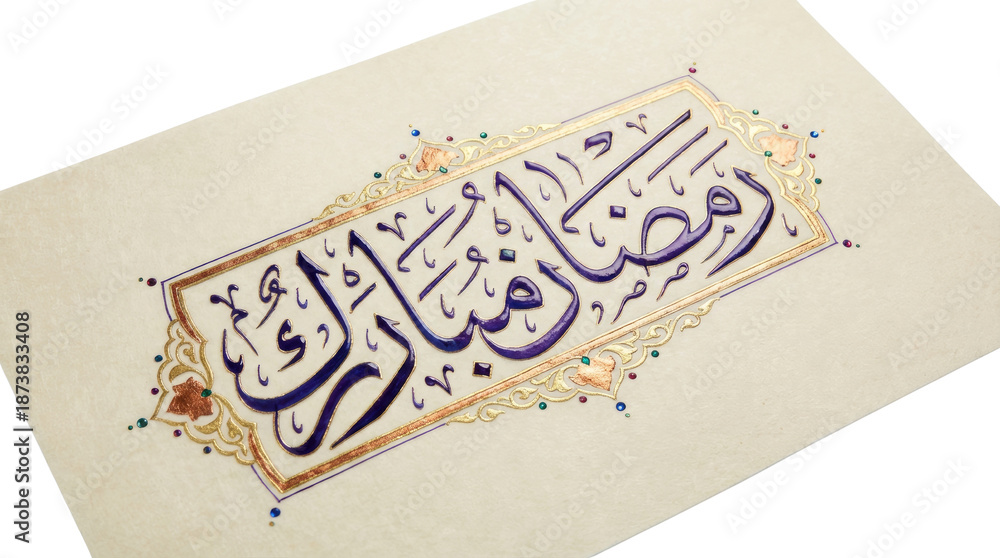 رمضان مبارك
Adobe Stock | #1873833408